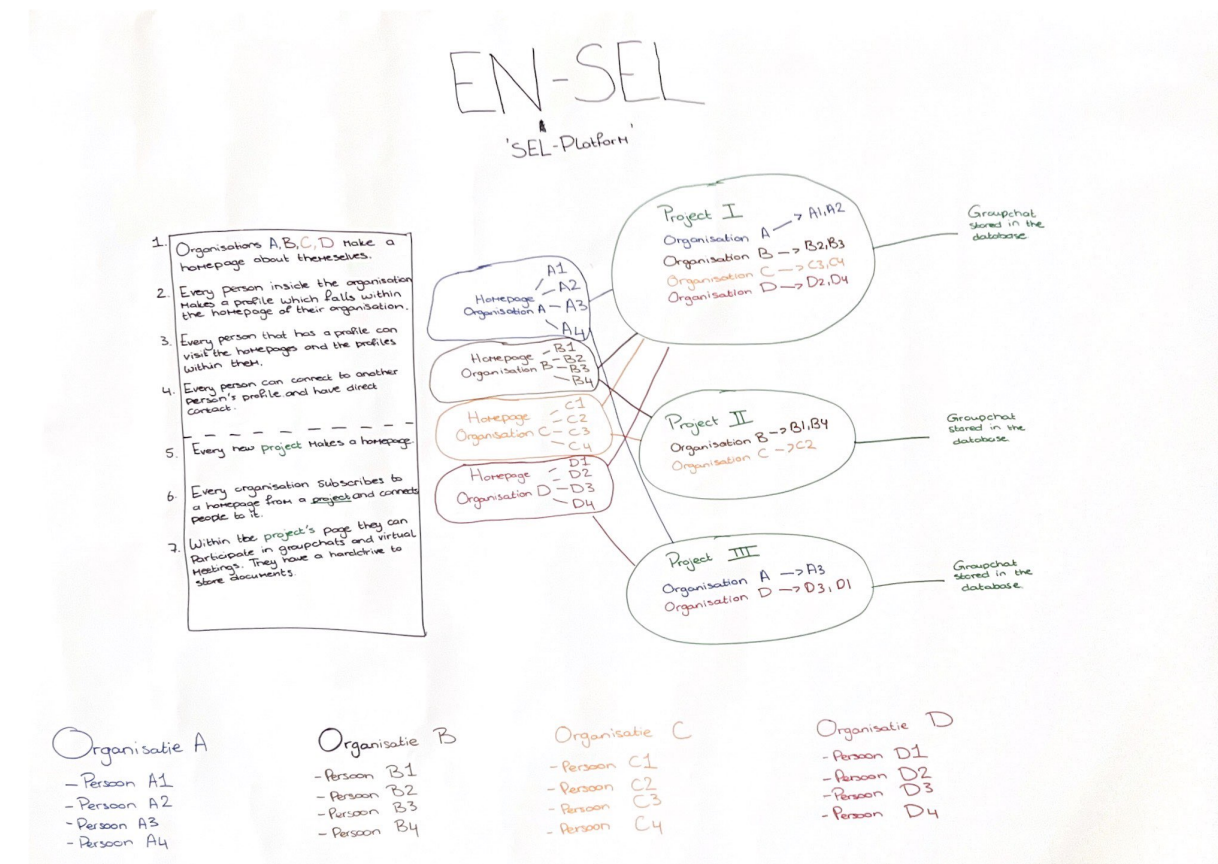 EN-SEL
'SEL-Platform'
1. Organisations A,B,C,D make a
homepage about themeselves.
2. Every person inside the organisation
makes a profile which falls within
the homepage of their organisation.
3. Every person that has a profile can
visit the homepages and the profiles
within them.
4. Every person can connect to another
person's profile and have direct
contact.
5. Every new project makes a homepage
6. Every organisation subscribes to
a homepage from a project and connects
people to it.
7. Within the project's page they can
participate in groupchats and virtual
meetings. They have a harddrive to
store documents.
Homepage
Organisation A
A1
A2
A3
A4
Homepage
Organisation B
B1
B2
B3
B4
Homepage
Organisation C
C1
C2
C3
C4
Homepage
Organisation D
D1
D2
D3
D4
Project I
Organisation A -> A1,A2
Organisation B -> B2,B3
Organisation C -> C3,C4
Organisation D -> D2,D4
Groupchat
stored in the
database
Project II
Organisation B -> B1,B4
Organisation C -> C2
Groupchat
stored in the
database
Project III
Organisation A -> A3
Organisation D -> D3, D1
Groupchat
stored in the
database.
Organisatie A
- Persoon A1
- Persoon A2
- Persoon A3
- Persoon A4
Organisatie B
- Persoon B1
- Persoon B2
- Persoon B3
- Persoon B4
Organisatie C
- Persoon C1
- Persoon C2
- Persoon C3
- Persoon C4
Organisatie D
- Persoon D1
- Persoon D2
- Persoon D3
- Persoon D4